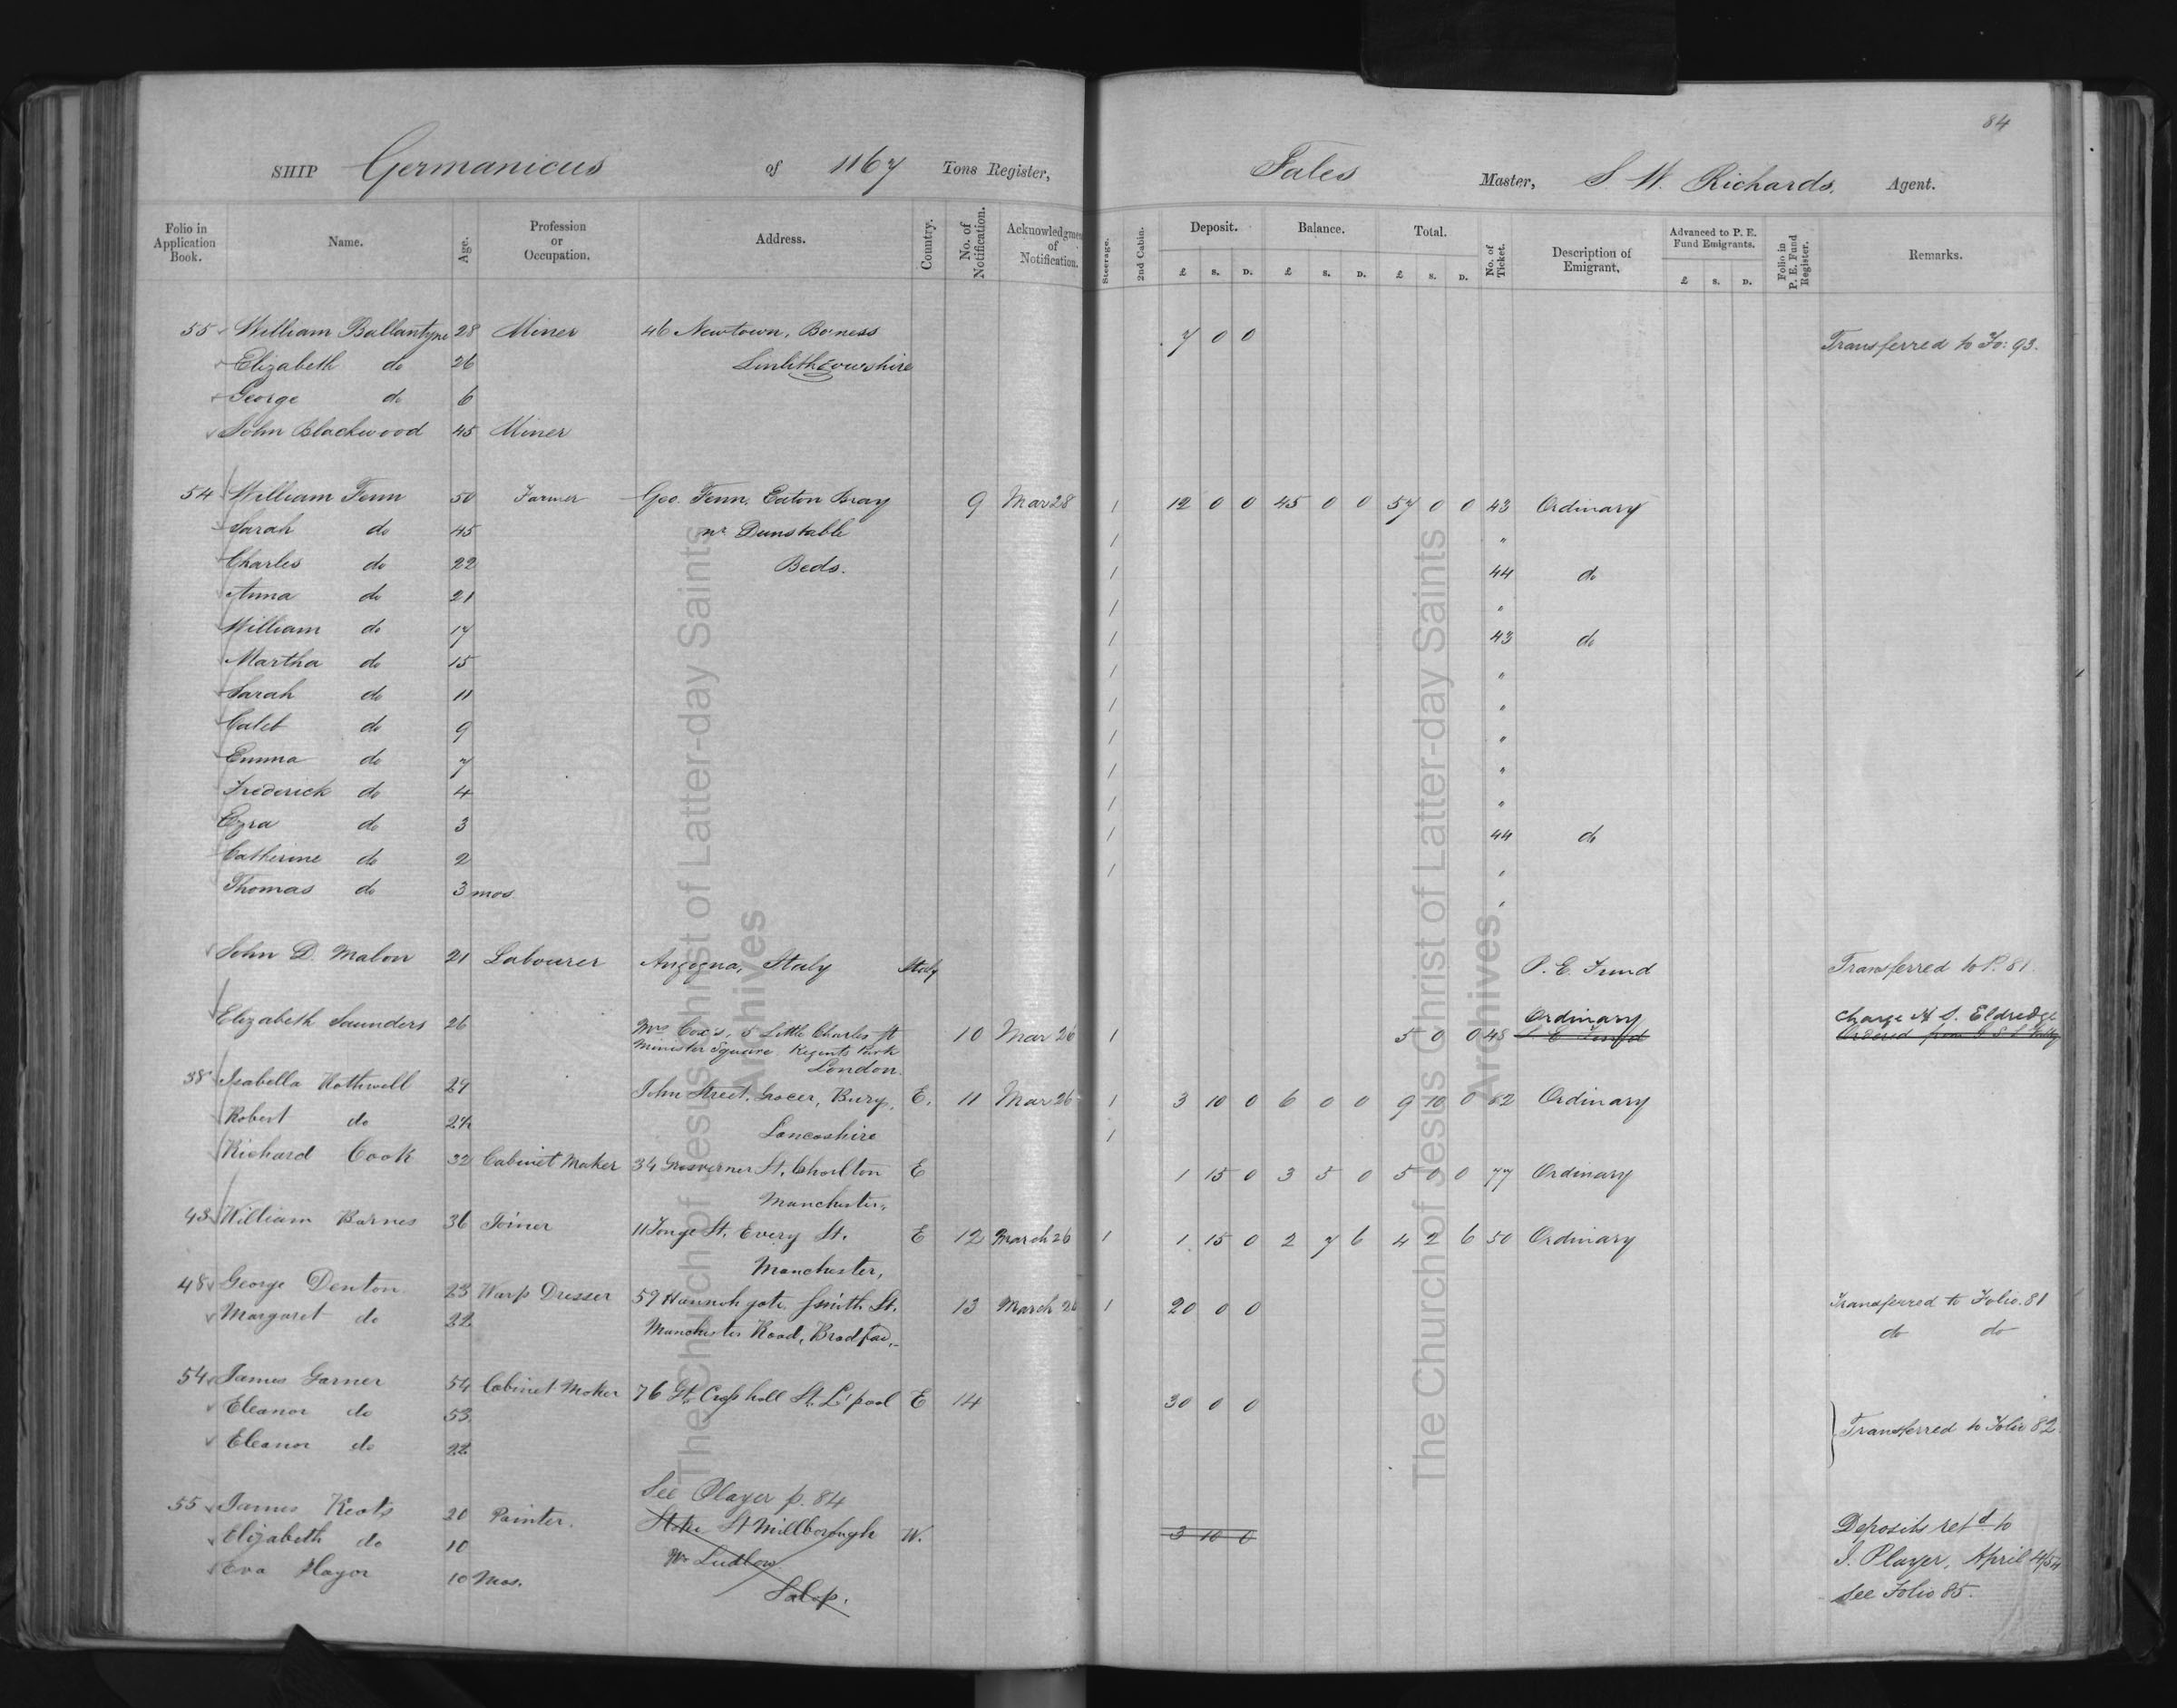 84
SHIP Germanicus of 1167 Tons Register, Fales Master, S W. Richards. Agent.
Folio in Application Book. Name. Age. Profession or Occupation. Address. Country. No. of Notification. Acknowledgment of Notification. Steerage. 2nd Cabin. Deposit. £ s. D. Balance. £ s. D. Total. £ s. D. No. of Ticket. Description of Emigrant. Advanced to P. E. Fund Emigrants. £ s. D. Folio in P. E. Fund Register. Remarks.
55 William Ballantyne 28 Miner 46 Newtown, Bo'ness 7 0 0 Transferred to Fo: 93.
Elizabeth do 26 Linlithgowshire
George do 6
John Blackwood 45 Miner
54 William Fenn 50 Farmer Geo. Fenn, Eaton Bray 9 Mar 28 1 12 0 0 45 0 0 57 0 0 43 Ordinary
Sarah do 45 nr Dunstable 1 "
Charles do 22 Beds. 1 44 do
Anna do 21 1 "
William do 17 1 43 do
Martha do 15 1 "
Sarah do 11 1 "
Caleb do 9 1 "
Emma do 7 1 "
Frederick do 4 1 "
Ezra do 3 1 44 do
Catherine do 2 1 "
Thomas do 3 mos "
John D. Malon 21 Labourer Angogna, Italy Italy P. E. Fund Transferred to P. 81
Elizabeth Saunders 26 Mrs Cox's, 5 Little Charles St 10 Mar 26 1 5 0 0 48 Ordinary Charge H S. Eldredge
Minister Square Regents Park P E Fund Ordered from G S L
London.
38 Isabella Rothwell 29 John Street, Grocer, Bury, E. 11 Mar 26 1 3 10 0 6 0 0 9 10 0 62 Ordinary
Robert do 24 Lancashire 1
Richard Cook 32 Cabinet Maker 34 Grosvernor St. Chorlton E 1 15 0 3 5 0 5 0 0 77 Ordinary
Manchester.
43 William Barnes 36 Joiner 11 Tonge St. Every St. E 12 March 26 1 1 15 0 2 7 6 4 2 6 50 Ordinary
Manchester,
48 George Denton 23 Warp Dresser 59 Hannah gate Smith St. 13 March 26 1 20 0 0 Transferred to Folio 81
Margaret do 22 Manchester Road, Bradford do do
54 James Garner 54 Cabinet Maker 76 Gt. Crosshall St. L'pool E 14 30 0 0
Eleanor do 53 Transferred to Folio 82
Eleanor do 22
See Player p. 84
55 James Keats 20 Painter. Stoke St Millborough W. 3 10 0 Deposits retd to
Elizabeth do 10 Nr Ludlow J. Player, April 4/54
Eva Player 10 Mos. Salop. See Folio 85.
The Church of Jesus Christ of Latter-day Saints
Archives
The Church of Jesus Christ of Latter-day Saints
Archives